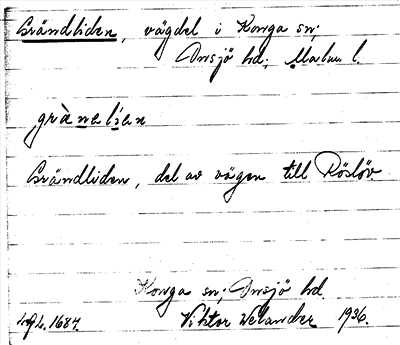 Grändliden, vägdel i Konga sn;
Onsjö hd; Malm. l.
grànəliən
Grändliden, del av vägen till Röslöv
Konga sn; Onsjö hd.
Viktor Welander 1936.
1684.